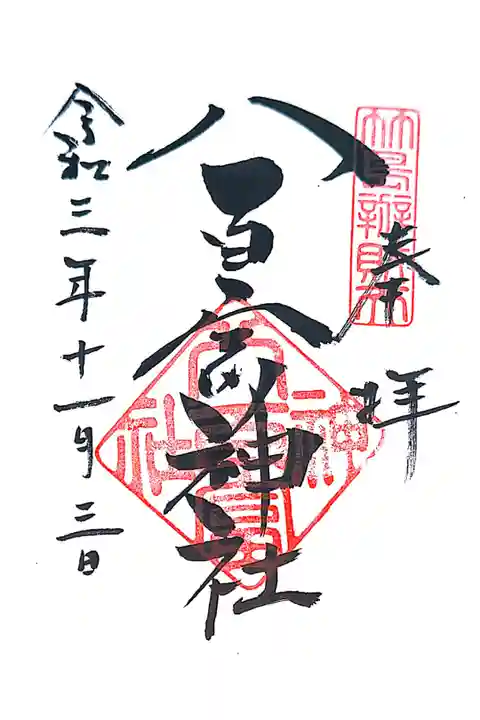 竹島辨財天
奉拝
八百富神社
令和三年十一月三日